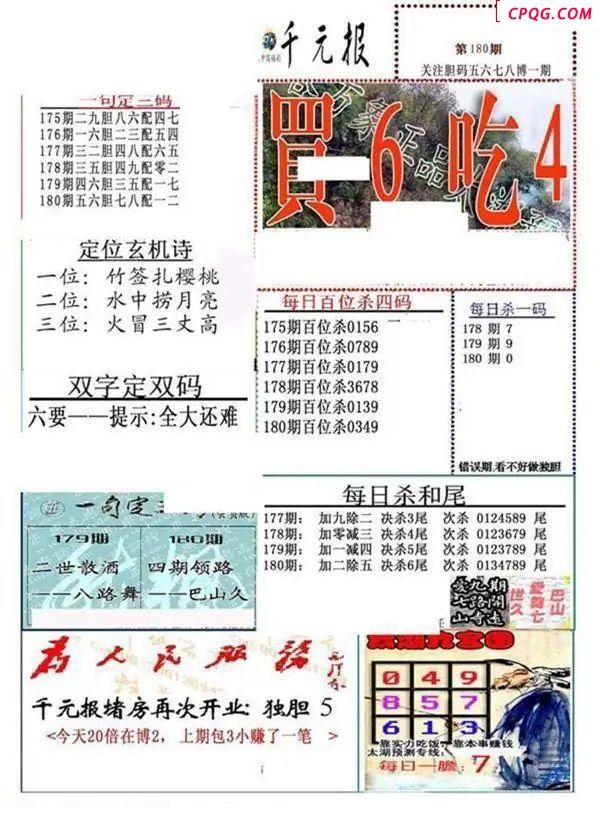 CPQG.COM
千元报
第180期
关注胆码五六七八博一期
一句定三码
175期二九胆八六配四七
176期一六胆二三配五四
177期三二胆四八配六五
178期三五胆四九配零二
179期四六胆三五配一七
180期五六胆七八配一二
買 6 吃 4
定位玄机诗
一位：竹签扎樱桃
二位：水中捞月亮
三位：火冒三丈高
每日百位杀四码
175期百位杀0156
176期百位杀0789
177期百位杀0179
178期百位杀3678
179期百位杀0139
180期百位杀0349
每日杀一码
178 期 7
179 期 9
180 期 0
错误期,看不好做独胆
双字定双码
六要——提示:全大还难
每日杀和尾
177期: 加九除二 决杀3尾 次杀 0124589 尾
178期: 加零减三 决杀4尾 次杀 0123679 尾
179期: 加一减四 决杀5尾 次杀 0123789 尾
180期: 加二除五 决杀6尾 次杀 0134789 尾
一句定三
179期
二世散酒
——八路舞
180期
四期领路
——巴山久
为人民服务
千元报堵房再次开业: 独胆 5
<今天20倍在博2，上期包3小赚了一笔 >
0 4 9
8 5 7
6 1 3
靠实力吃饭，靠本事赚钱
太湖预测专线:
每日一胆: 7